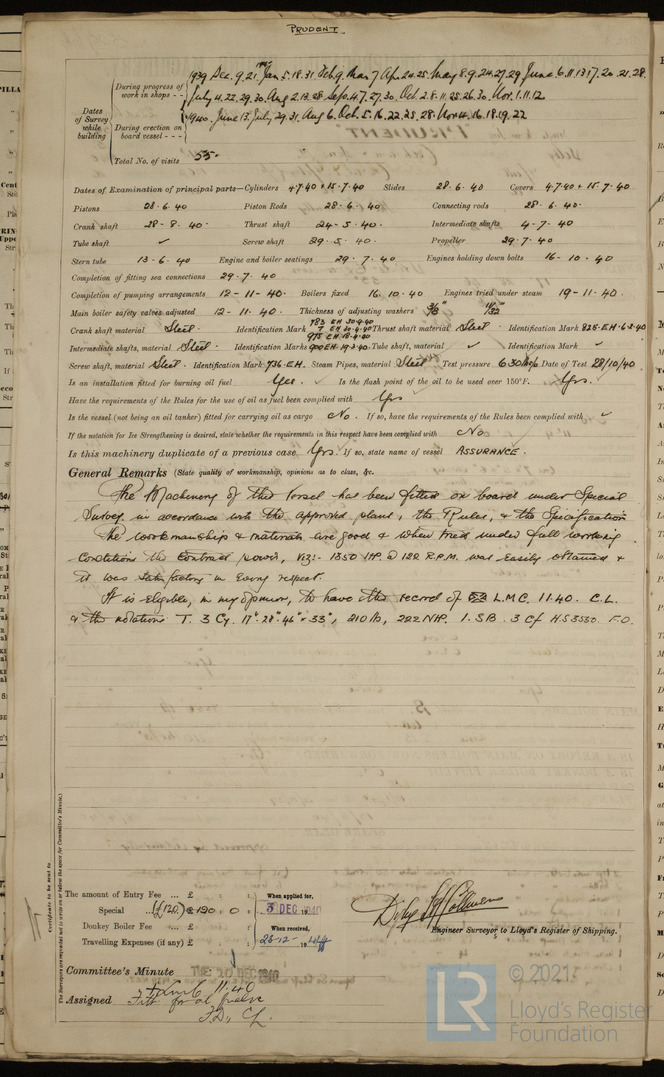 PRUDENT.
Dates of Survey while building
During progress of work in shops - - 1939 Dec. 9. 21. 1940 Jan 5. 18. 31. Feb 9. Mar 7 Apr 24. 25. May 8. 9. 24. 27. 29 June 6. 11. 13. 17. 20. 21. 28.
July 4. 22. 29. 30. Aug 2. 13. 28. Sept. 4. 7. 27. 30. Oct. 2. 8. 11. 25. 26. 30. Nov. 1. 11. 12
During erection on board vessel - - - 1940. June 13. July 29. 31. Aug 6. Oct. 5. 16. 22. 25. 28. Nov 4. 16. 18. 19. 22
Total No. of visits 55.
Dates of Examination of principal parts—Cylinders 4.7.40 & 15.7.40 Slides 28.6.40 Covers 4.7.40 & 15.7.40
Pistons 28.6.40 Piston Rods 28.6.40 Connecting rods 28.6.40
Crank shaft 28-8-40. Thrust shaft 24-5-40. Intermediate shafts 4-7-40
Tube shaft ✓ Screw shaft 29.5.40. Propeller 29.7.40
Stern tube 13-6-40 Engine and boiler seatings 29.7.40 Engines holding down bolts 16.10.40
Completion of fitting sea connections 29.7.40
Completion of pumping arrangements 12-11-40. Boilers fixed 16.10.40 Engines tried under steam 19-11-40.
Main boiler safety valves adjusted 12-11-40. Thickness of adjusting washers 3/8" 11/32"
Crank shaft material Steel. Identification Mark Thrust shaft material Steel. Identification Mark 825.EH.6.2.40
Intermediate shafts, material Steel. Identification Marks 900 EH. 19.3.40. Tube shaft, material ✓ Identification Mark ✓
Screw shaft, material Steel. Identification Mark 736.EH. Steam Pipes, material Steel Test pressure 630 Date of Test 28/10/40.
Is an installation fitted for burning oil fuel Yes. ✓ Is the flash point of the oil to be used over 150°F. Yes.
Have the requirements of the Rules for the use of oil as fuel been complied with Yes
Is the vessel (not being an oil tanker) fitted for carrying oil as cargo No. If so, have the requirements of the Rules been complied with ✓
If the notation for Ice Strengthening is desired, state whether the requirements in this respect have been complied with No
Is this machinery duplicate of a previous case Yes. If so, state name of vessel ASSURANCE.
General Remarks (State quality of workmanship, opinions as to class, &c.
The Machinery of this Vessel has been fitted on board under Special
Survey in accordance with the approved plans, the Rules, & the Specification
The workmanship & materials are good & when tried under full working
conditions the contract power, viz:- 1350 I.H.P. @ 122 R.P.M. was easily obtained &
it was satisfactory in every respect.
It is eligible, in my opinion, to have the record of L.M.C. 11.40. C.L.
& the notations T. 3 Cy. 17". 28". 46" x 33", 210 lb, 222 NHP. 1.SB. 3 Cf HS 3530. F.O.
Certificate to be sent to
(The Surveyors are requested not to write on or below the space for Committee's Minute.)
The amount of Entry Fee ... £ : :
Special ... £ 190 . 0 :
Donkey Boiler Fee ... £ : :
Travelling Expenses (if any) £ : :
When applied for, 5 DEC 1940
When received,
Engineer Surveyor to Lloyd's Register of Shipping.
Committee's Minute TUE. 10 DEC 1940
Assigned + L.M.C 11.40
Fitted for oil fuel
F.D., CL.
© 2021
LR
Lloyd's Register
Foundation